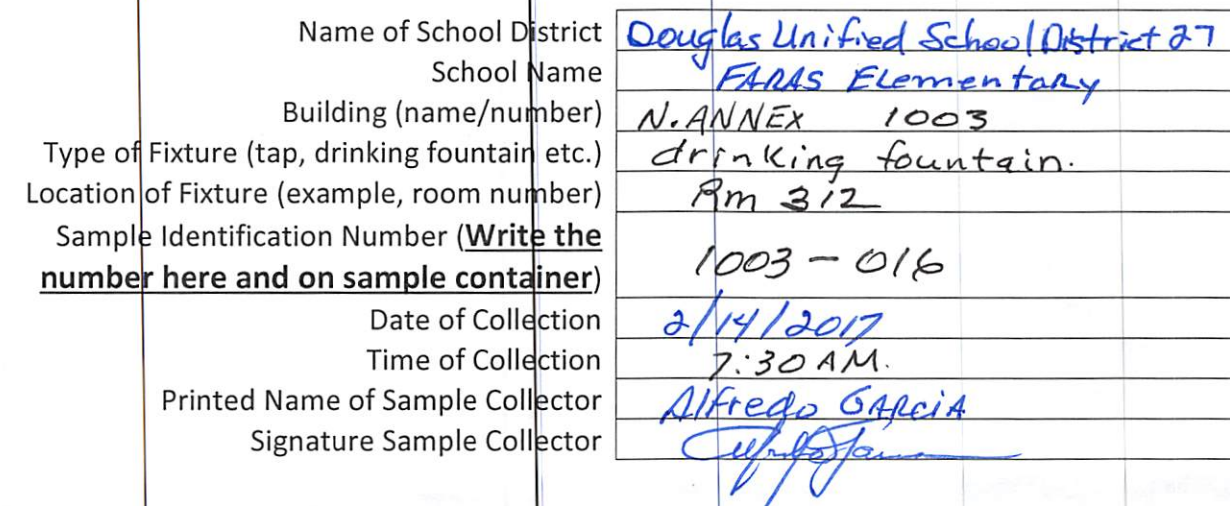 Name of School District Douglas Unified School District 27
School Name FARAS Elementary
Building (name/number) N. ANNEX 1003
Type of Fixture (tap, drinking fountain etc.) drinking fountain.
Location of Fixture (example, room number) Rm 312
Sample Identification Number (Write the
number here and on sample container) 1003-016
Date of Collection 2/14/2017
Time of Collection 7:30 AM.
Printed Name of Sample Collector Alfredo GARCIA
Signature Sample Collector